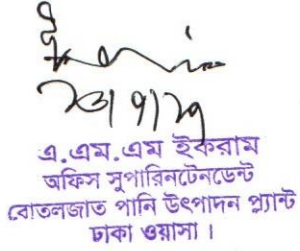 এ.এম.এম ইকরাম
অফিস সুপারিনটেনডেন্ট
বোতলজাত পানি উৎপাদন প্ল্যান্ট
ঢাকা ওয়াসা ।